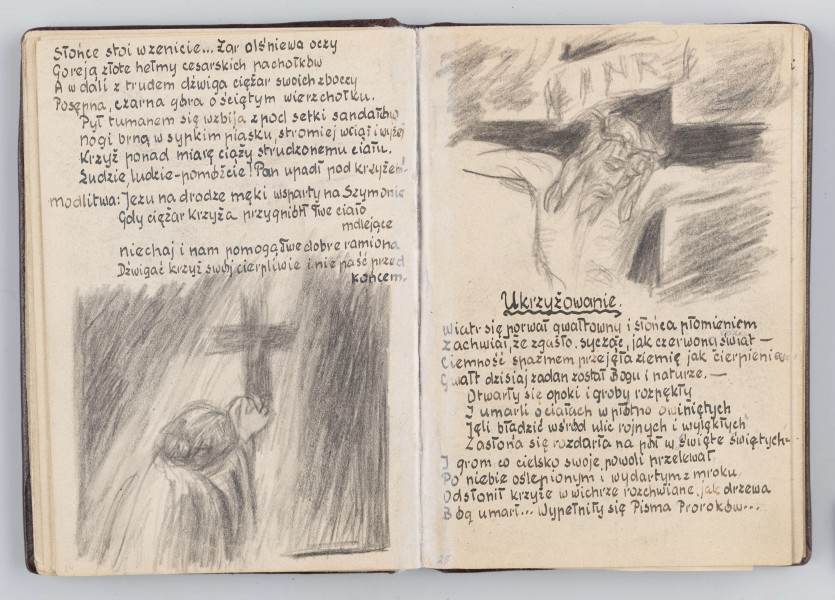 Słońce stoi w zenicie... Żar olśniewa oczy
Goreją złote hełmy cesarskich pachołków
A w dali z trudem dźwiga ciężar swoich zboczy
Posępna, czarna góra o ściętym wierzchołku.
Pył tumanem się wzbija z pod setki sandałów
Nogi brną w sypkim piasku, stromiej wciąż i wyżej
Krzyż ponad miarę ciąży strudzonemu ciału.
Ludzie, ludzie – pomóżcie! Pan upadł pod krzyżem!
Modlitwa: Jezu na drodze męki wsparty na Szymonie
Gdy ciężar krzyża przygniótł Twe ciało
mdlejące
niechaj i nam pomogą Twe dobre ramiona
Dźwigać krzyż swój cierpliwie i nie paść przed
końcem.
INRI
Ukrzyżowanie.
Wiatr się porwał gwałtowny i słońca płomieniem
Zachwiał, że zgasło, sycząc, jak czerwona świat –
Ciemność spazmem przejęła ziemię jak cierpienie
Gwałt dzisiaj zadan został Bogu i naturze. –
Otwarły się opoki i groby rozpękły
I umarli o ciałach w płótno owiniętych
Jęli błądzić wśród ulic rojnych i wylękłych
Zasłona się rozdarła na pół w święte świętych –
I grom co cielsko swoje powoli przelewał
Po niebie oślepionym i wydartym z mroku
Odsłonił krzyże w wichrze rozchwiane, jak drzewa
Bóg umarł... Wypełniły się Pisma Proroków...
25